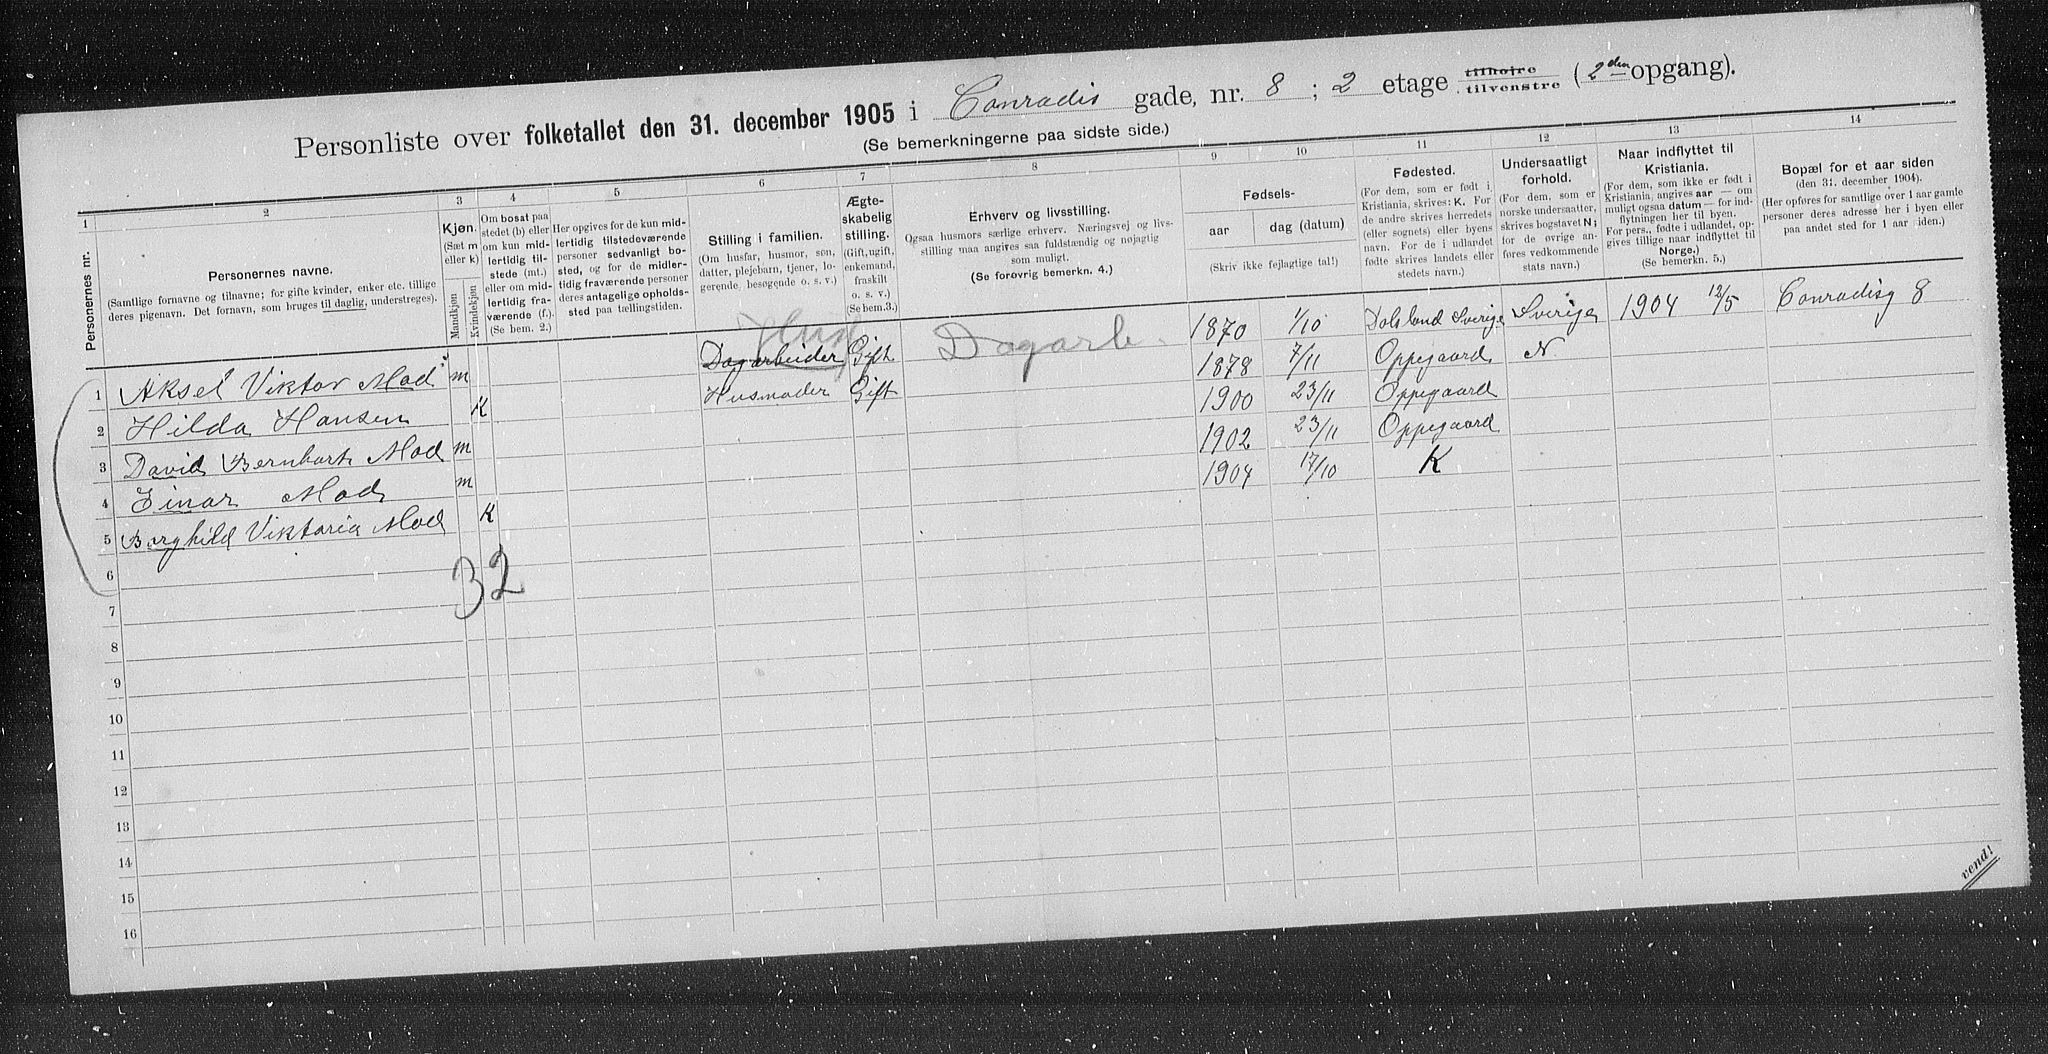 Personliste over folketallet den 31. december 1905 i Conradis gade, nr. 8 ; 2 etage tilhøire tilvenstre (2den opgang).
(Se bemerkningerne paa sidste side.)
1 2 3 4 5 6 7 8 9 10 11 12 13 14
Personernes nr.
Personernes navne.
(Samtlige fornavne og tilnavne; for gifte kvinder, enker etc. tillige
deres pigenavn. Det fornavn, som bruges til daglig, understreges).
Kjøn.
(Sæt m
eller k)
Mandkjøn
Kvindekjøn
Om bosat paa
stedet (b) eller
om kun mid-
lertidig til-
stede (mt.)
eller om mid-
lertidig fra-
værende (f.).
(Se bem. 2.)
Her opgives for de kun mid-
lertidig tilstedeværende
personer sedvanligt bo-
sted, og for de midler-
tidig fraværende personer
deres antagelige opholds-
sted paa tællingstiden.
Stilling i familien.
(Om husfar, husmor, søn,
datter, plejebarn, tjener, lo-
gerende, besøgende o. s. v.)
Ægte-
skabelig
stilling.
(Gift, ugift,
enkemand,
fraskilt
o. s. v.)
(Se bem.3.)
Erhverv og livsstilling.
Ogsaa husmors særlige erhverv. Næringsvej og livs-
stilling maa angives saa fuldstændig og nøjagtig
som muligt.
(Se forøvrig bemerkn. 4.)
Fødsels-
aar dag (datum)
(Skriv ikke fejlagtige tal!)
Fødested.
(For dem, som er født i
Kristiania, skrives: K. For
de andre skrives herredets
(eller sognets) eller byens
navn. For de i udlandet
fødte skrives landets eller
stedets navn.)
Undersaatligt
forhold.
(For dem, som er
norske undersaatter,
skrives bogstavet N;
for de øvrige an-
føres vedkommende
stats navn.)
Naar indflyttet til
Kristiania.
(For dem, som ikke er født i
Kristiania, angives aar — om
muligt ogsaa datum — for ind-
flytningen her til byen.
For pers., fødte i udlandet, op-
gives tillige naar indflyttet til
Norge.)
(Se bemerkn. 5.)
Bopæl for et aar siden
(den 31. december 1904).
(Her opføres for samtlige over 1 aar gamle
personer deres adresse her i byen eller
paa andet sted for 1 aar iden.)
1 Aksel Viktor Mod m Dagarbeider Husf Gift Dagarb. 1870 1/10 Dalsland Sverige Sverige 1904 12/5 Conradisg 8
2 Hilda Hansen K Husmoder Gift 1878 7/11 Oppegaard N
3 David Bernhart Mod m 1900 23/11 Oppegaard
4 Einar Mod m 1902 23/11 Oppegaard
5 Borghild Viktoria Mod K 1904 17/10 K
6
32
7
8
9
10
11
12
13
14
15
16
vend!